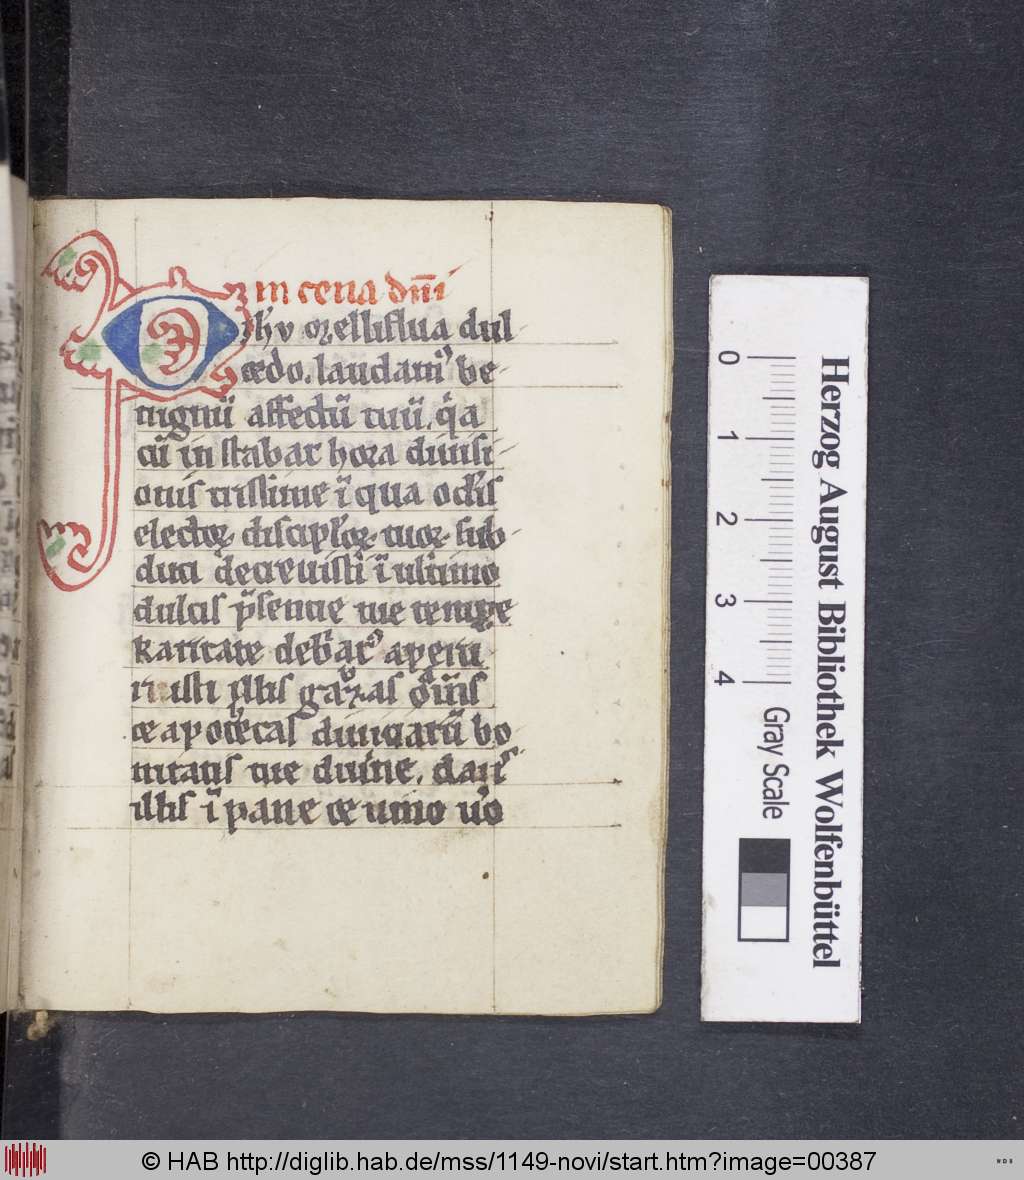 In cena dn̄i
O ih̄u melliflua dul
cedo. laudam᷒ be
nignū affectū tuū. qͥa
cū in stabat hora diuisi
onis tristime ī qua oc̄lis
electoꝝ discip̄loꝝ tuoꝝ sub
duci decreuisti ī ultimo
dulcis p̄sentie tue
karitate apperu
isti illis gazas om̄is
ce apotecas diuiciarū bo
nitatis tue diuine. dans
illis ī pane ce uino u̓o
0 1 2 3 4
Gray Scale
Herzog August Bibliothek Wolfenbüttel
© HAB http://diglib.hab.de/mss/1149-novi/start.htm?image=00387